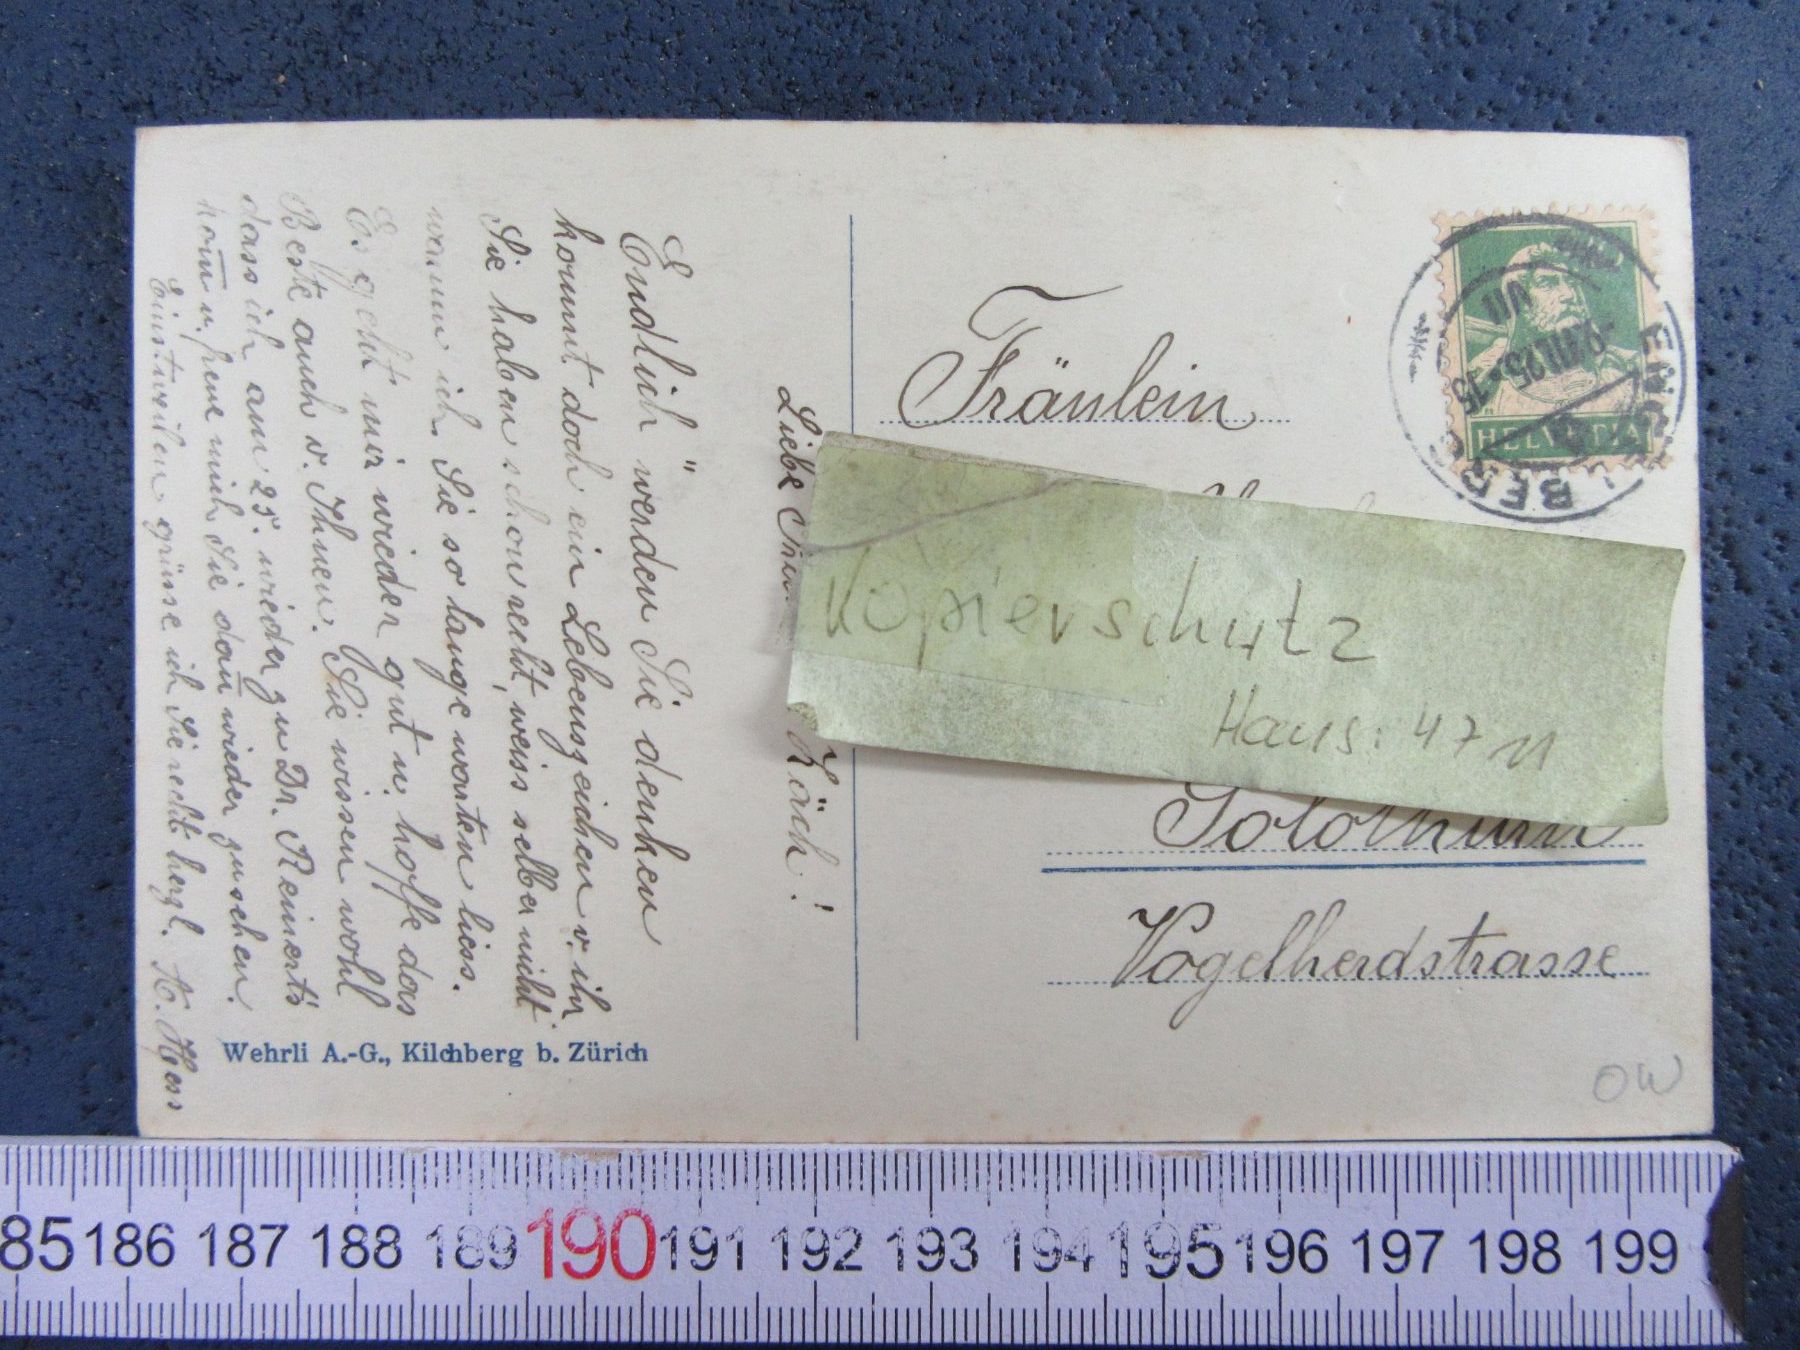 Liebe
Köch!
Endlich" werden Sie denken
kommt doch ein Lebenszeichen v. ihr
Sie haben schon recht, weiss selber nicht
warum ich Sie so lange warten liess.
Es geht mir wieder gut u. hoffe das
Beste auch v. Ihnen. Sie wissen wohl
dass ich am 25. wieder zu Dr. Reinert's
kom̄ u. freue mich Sie dan̄ wieder zu sehen.
Einstweilen grüsse ich Sie recht herzl.
Hess
Fräulein
Kopierschutz
Haus: 47 11
Solothurn
Vogelherdstrasse
OW
HELVETIA
ENGELBERG
-9.VII.25-15
VII
Wehrli A.-G., Kilchberg b. Zürich
85 186 187 188 189 190 191 192 193 194 195 196 197 198 199